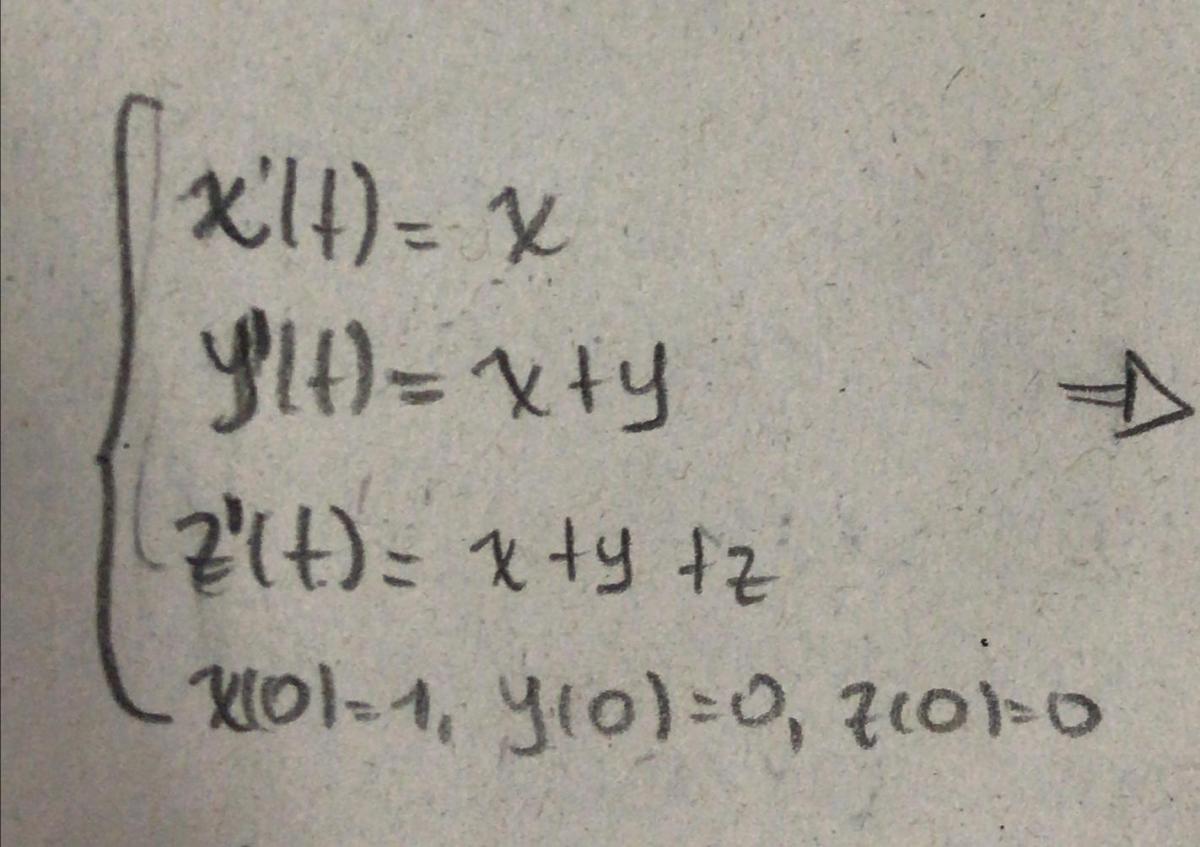 x'(t) = x
y'(t) = x + y ⇒
z'(t) = x + y + z
x(0) = 1, y(0) = 0, z(0) = 0